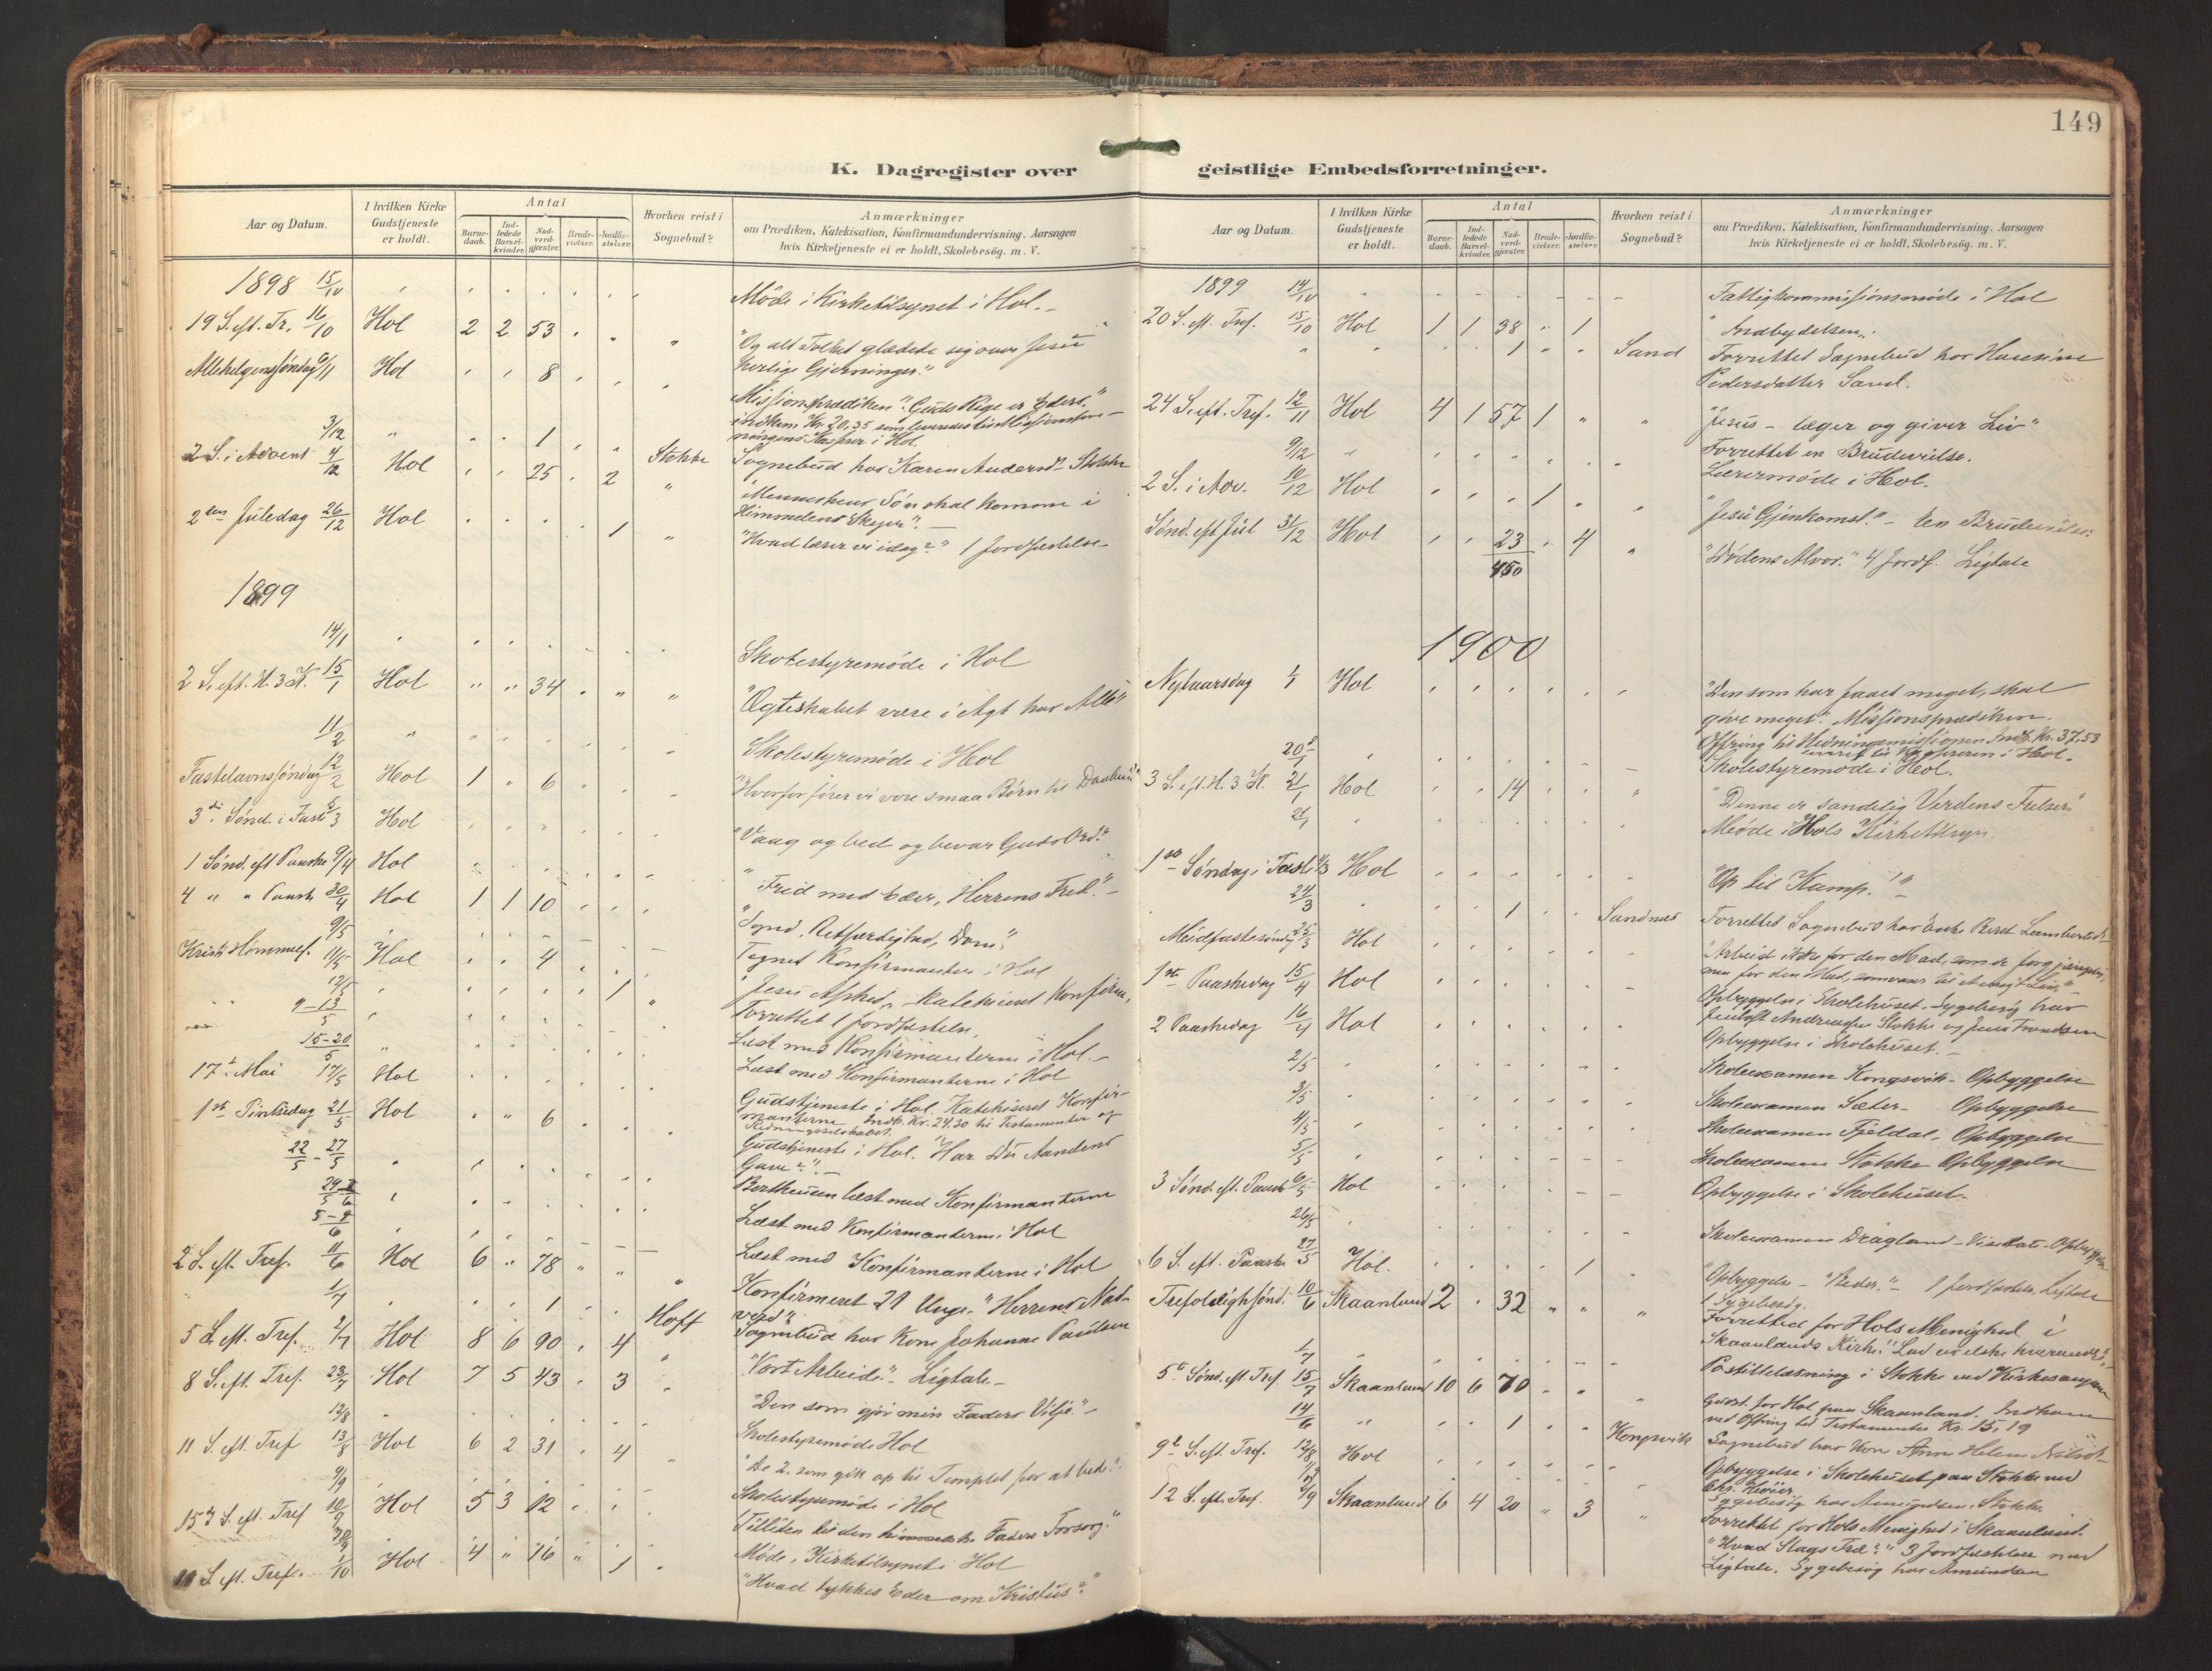 149
K. Dagregister over geistlige Embedsforretninger.
Aar og Datum.
I hvilken Kirke Gudstjeneste er holdt.
Antal
Barnedaab.
Indledede Barselkvinder.
Nadverdgjester.
Brudevielser.
Jordfæstelser.
Hvorhen reist i Sognebud?
Anmærkninger
om Prædiken, Katekisation, Konfirmandundervisning, Aarsagen
hvis Kirketjeneste ei er holdt, Skolebesög. m. V.
1898 15/10 Möde i Kirketilsynet i Hol.
19 S. eft. Tr. 16/10 Hol 2 2 53 "Og alt Folket glædede sig over Jesu
herlige Gjerninger."
Allehelgenssöndag 6/11 Hol 8 Missionsprædiken. "Guds Rige er Eders"
indkom Kr. 20,35 som leveredes til Missionsfore-
ningens Kasserer i Hol.
3/12 1 Stokke Sognebud hos Karen Andersdr Stokke
2 S. i Advent 4/12 Hol 25 2 "Menneskens Sön skal komme i
Himmelens Skyer".
2den Juledag 26/12 Hol 1 "Hvad lærer vi idag?" 1 Jordfæstelse
1899
14/1 Skolestyremöde i Hol
2 S. eft. H. 3 K. 15/1 Hol 34 "Ægteskabet være i Agt hos Alle"
11/2 Skolestyremöde i Hol
Fastelavnssöndag 12/2 Hol 1 6 "Hvorfor förer vi vore smaa Börn til Daaben"
3die Sönd. i Faste 5/3 Hol "Vaag og bed og bevar Guds Ord."
1 Sönd. eft Paaske 9/4 Hol "Fred med Eder, Herrens Fred."
4 " " Paaske 30/4 Hol 1 1 10 "Synd, Retfærdighed, Dom"
9/5 Tegnet Konfirmanter i Hol
Kristi Himmelf. 11/5 Hol 4 "Jesu Afsked" Katekiseret Konfirm.
12/5 1 Forrettet 1 Jordfæstelse.
9-13/5 Læst med Konfirmanterne i Hol.
15-20/5 Læst med Konfirmanterne i Hol
17de Mai 17/5 Hol Gudstjeneste i Hol. Katekiseret Konfir-
manterne Indk. Kr. 24.30 til Testamenter og
Redningsselskabet.
1ste Pintsedag 21/5 Hol 6 Gudstjeneste i Hol. "Har du Aandens
Gave?"
22/5 - 27/5 Berthensen læst med Konfirmanterne
Læst med Konfirmanterne i Hol
5-9/6 Læst med Konfirmanterne i Hol
2 S. eft. Tref. 11/6 Hol 6 78 Konfirmeret 21 Unge. "Herrens Nad-
verd"
1/7 1 Hoft Sognebud hos Kone Johanne Paulsen
5 S. eft. Tref. 2/7 Hol 8 6 90 4 "Vort Arbeide". Ligtale.
8 S. eft. Tref. 23/7 Hol 7 5 43 3 "Den som gjör min Faders Vilje."
12/8 Skolestyremöde Hol
11 S. eft. Tref 13/8 Hol 6 2 31 4 "De 2, som gik op til Templet for at bede."
9/9 Skolestyremöde i Hol
15de S. eft. Tref 10/9 Hol 5 3 12 "Tilliten til den himmelske Faders Forsorg."
30/9 Möde i Kirketilsynet i Hol
S. eft. Tref. 1/10 Hol 4 16 1 "Hvad tykkes Eder om Kristus?"
Aar og Datum.
I hvilken Kirke Gudstjeneste er holdt.
Antal
Barnedaab.
Indledede Barselkvinder.
Nadverdgjester.
Brudevielser.
Jordfæstelser.
Hvorhen reist i Sognebud?
Anmærkninger
om Prædiken, Katekisation, Konfirmandundervisning, Aarsagen
hvis Kirketjeneste ei er holdt, Skolebesög. m. V.
1899 14/10 Fattigkommissionsmöde i Hol
20 S. eft. Tref. 15/10 Hol 1 1 38 1 "Indbydelsen".
1 Sand Forrettet Sognebud hos
Pedersdatter Sand.
24 S. eft. Tref. 12/11 Hol 4 1 57 1 "Jesus - læger og giver Liv"
Forrettet en Brudevielse.
9/12 Lærermöde i Hol.
2 S. i Adv. 10/12 Hol 1 "Jesu Gjenkomst". En Brudevielse.
Sönd. eft Jul 31/12 Hol 23 4 "Dödens Alvor." 4 Jordf. Ligtale
450
1900
Nytaarsdag 1/1 Hol "Den som har faaet meget, skal
give meget". Missionsprædiken.
Ofring til Hedningemissionen Indk. Kr. 37,53
leveret til Kassereren i Hol.
20/1 Skolestyremöde i Hol.
3 S. eft. H. 3 K. 21/1 Hol 14 "Denne er sandelig Verdens Frelser"
21/1 Möde i Hols Kirketilsyn.
1ste Söndag i Faste 4/3 Hol "Op til Kamp!"
24/3 1 Sandnes Forrettet Sognebud hos Enke Beret Lambertsd.
Midfastesöndag 25/3 Hol "Arbeid ikke for den Mad, som er forgjængelig,
men for den Mad, som varer til evigt Liv."
1ste Paaskedag 15/4 Hol Opbyggelse i Skolehuset. Sygebesög hos
Andreassen Stokke og Jens Trondsen
2 Paaskedag 16/4 Hol Opbyggelse i Skolehuset.
2/5 Skoleexamen Kongsvik - Opbyggelse
3/5 Skoleexamen Sæter - Opbyggelse
4/5 Skoleexamen Fjeldal - Opbyggelse
5/5 Skoleexamen Stokke Opbyggelse
3 Sönd. eft. Paaske 6/5 Hol Opbyggelse i Skolehuset.
26/5 Skoleexamen Dragland - Visitats - Opbyggelse
6 S. eft. Paaske 27/5 Hol. 1 Opbyggelse - "Beder." - 1 Jordfæstelse, Ligtale
1 Sygebesög.
Trefoldighsönd. 10/6 Skaanland 2 32 Forrettet for Hols Menighed i
Skaanlands Kirke. "Lad os elske hverandre".
1/7 Postillelæsning i Stokke ved Kirkesangeren
5te Sönd. eft Tref. 15/7 Skaanland 10 6 70 Gudst. for Hol paa Skaanland. Indkom
ved Ofring til Testamenter Kr. 15,19
14/6 1 Kongsvik Sognebud hos Kone Anne Helene
9de S. eft. Tref. 12/8 Hol Opbyggelse i Skolehuset paa Stokke ved
Chr.
Sygebesög hos Amundsen, Stokke.
12 S. eft. Tref. 2/9 Skaanland 6 4 20 3 Forrettet for Hols Menighed i Skaanland.
"Hvad Slags Træ?" 3 Jordfæstelser med
Ligtale. Sygebesög hos Amundsen